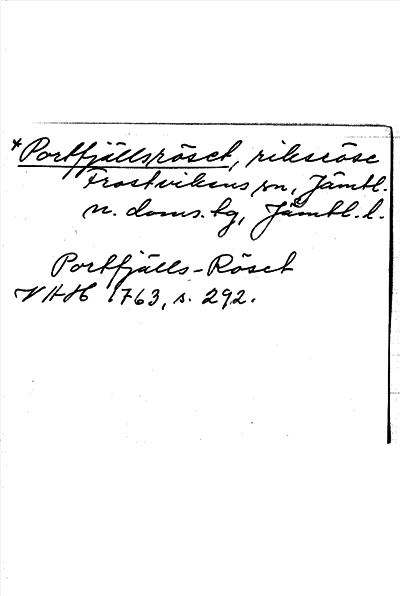 *Portfjällsröset, riksröse
Frostviksns sn, Jämtl.
n. doms. hg, Jämtl. l.
Portfjälls-Röset
VHH 1763, s. 292.